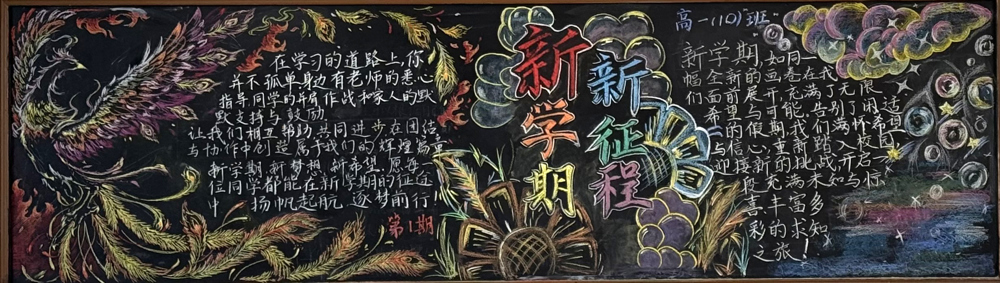 在学习的道路上,你
并不孤单,身边有老师的悉心
指导同学的并肩作战和家人的默
默支持与鼓励
让我们相互帮助,共同进步在团结
与协作中创造属于我们的辉煌篇章
新学期,新梦想,新希望,愿每一
位同学都能在新学期的征途
中 扬帆起航 逐梦前行!
第1期
新学期
新征程
高一(10)班
新学期,如同一
幅全新的画卷在我
们面前展开,充满了无限
希望与可能,我们告别了
迎接新的挑战,开启一
段充满未知与惊
喜、丰富多
彩的求知
之旅!